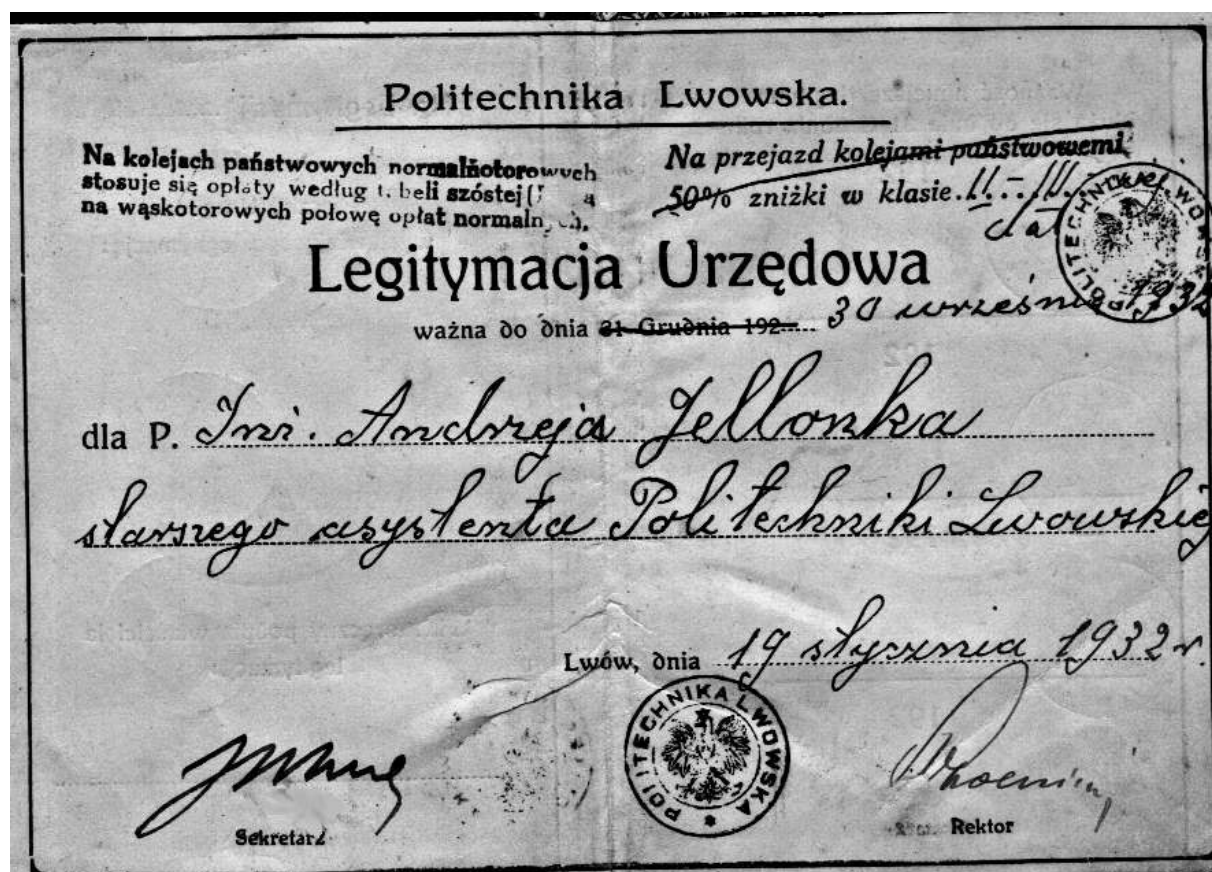 Politechnika Lwowska.
Na kolejach państwowych normalnotorowych
stosuje się opłaty według tabeli szóstej
na wąskotorowych połowę opłat normalnych.
Na przejazd kolejami państwowemi
50% zniżki w klasie II.-III.
Legitymacja Urzędowa
ważna do dnia 31 Grudnia 192 30 września 1932
dla P. Inż. Andrzeja Jellonka
starszego asystenta Politechniki Lwowskiej
Lwów, dnia 19 stycznia 1932 r.
POLITECHNIKA LWOWSKA
POLITECHNIKA LWOWSKA
Sekretarz
Rektor